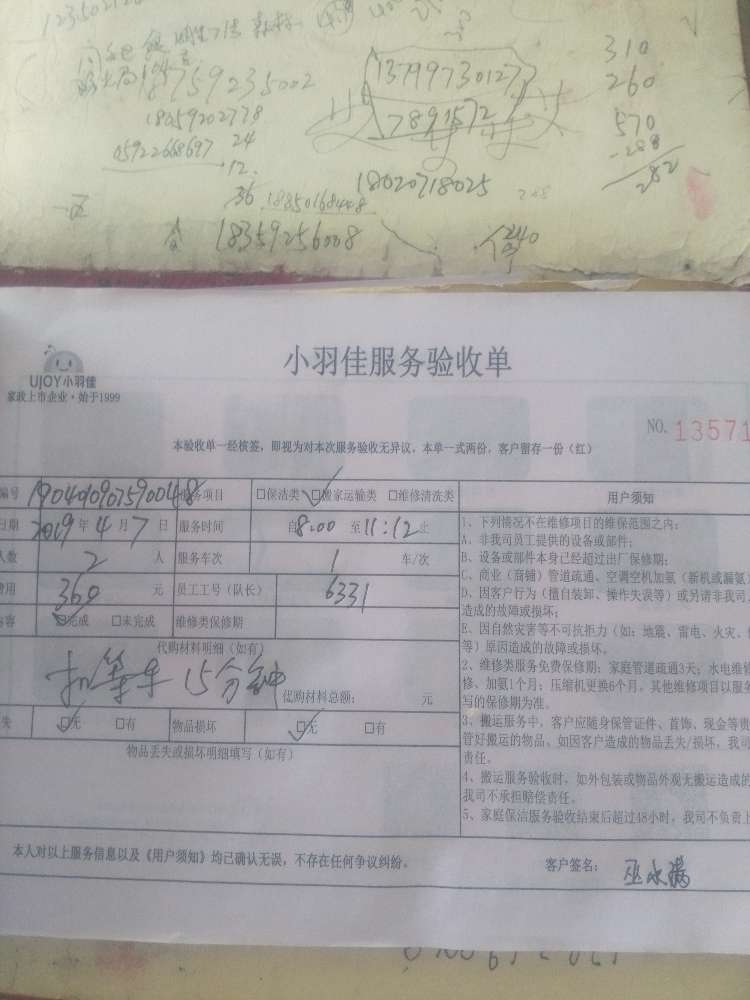 310
260
18759235002
13799730127
18059202778
7891572
570
05922668697
24
-288
12.
282
36
18850168448
18020718025
18359256008
240
小羽佳服务验收单
UJOY小羽佳
家政上市企业·始于1999
NO. 13571
本验收单一经核签，即视为对本次服务验收无异议。本单一式两份，客户留存一份（红）
编号 1904010907590048 服务项目 □保洁类 ☑搬家运输类 □维修清洗类 用户须知
日期 2019 年 4 月 7 日 服务时间 自 8:00 至 11:12 止
人数 2 人 服务车次 1 车/次
费用 360 元 员工工号（队长） 6331
内容 ☑完成 □未完成 维修类保修期
代购材料明细（如有）
扣等车15分钟 代购材料总额： 元
失 ☑无 □有 物品损坏 ☑无 □有
物品丢失或损坏明细填写（如有）
1、下列情况不在维修项目的维保范围之内：
A、非我司员工提供的设备或部件；
B、设备或部件本身已经超过出厂保修期；
C、商业（商铺）管道疏通、空调空机加氨（新机或漏氨
D、因客户行为（擅自装卸、操作失误等）或另请非我司
造成的故障或损坏；
E、因自然灾害等不可抗拒力（如：地震、雷电、火灾、
等）原因造成的故障或损坏。
2、维修类服务免费保修期：家庭管道疏通3天；水电维
修、加氨1个月；压缩机更换6个月，其他维修项目以服
写的保修期为准。
3、搬运服务中，客户应随身保管证件、首饰、现金等贵
管好搬运的物品、如因客户造成的物品丢失/损坏，我司
责任。
4、搬运服务验收时，如外包装或物品外观无搬运造成的
我司不承担赔偿责任。
5、家庭保洁服务验收结束后超过48小时，我司不负责上
本人对以上服务信息以及《用户须知》均已确认无误，不存在任何争议纠纷。
客户签名： 巫永满